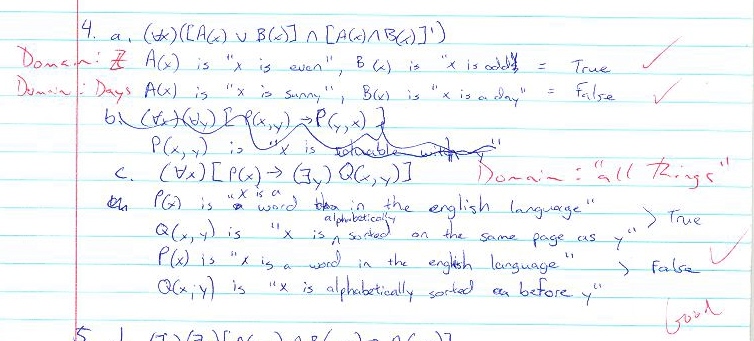 4. a. (∀x)([A(x) ∨ B(x)] ∧ [A(x) ∧ B(x)]')
Domain: Z A(x) is "x is even", B(x) is "x is odd" = True ✓
Domain: Days A(x) is "x is sunny", B(x) is "x is a day" = False ✓
b. (∀x)(∀y)[P(x,y) → P(y,x)]
P(x,y) is "x is with y"
c. (∀x)[P(x) → (∃y) Q(x,y)] Domain: "all things"
P(x) is "x is a word in the english language"
Q(x,y) is "x is alphabetically sorted on the same page as y" > True
P(x) is "x is a word in the english language" > False ✓
Q(x,y) is "x is alphabetically sorted before y"
Good
5